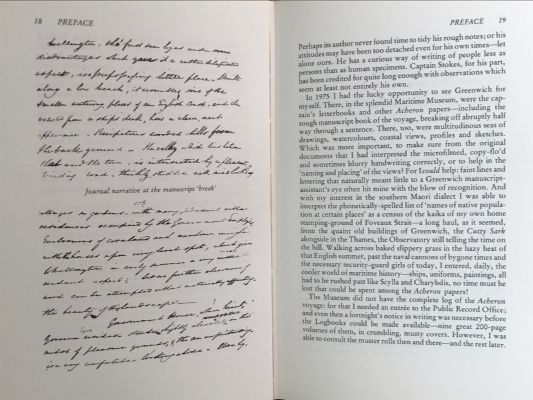 18 PREFACE
Wellington, tho' first seen by us under some
disadvantages which gave it a rather dilapidated
aspect, is a prepossessing little place. Built
along a low beach, it reminds one of the
smaller watering places of an English Coast, and when
viewed from a ships deck, has a clean, neat
appearance. Precipitous wooded hills form
the background
winding road, thickly studded with
Journal narrative at the manuscript 'break'
115
cottages & gardens, with many
occupied by the Government
the beauty of
Government House,
midst of pleasure grounds, &
is a very comfortable looking abode.
PREFACE 19
Perhaps its author never found time to tidy his rough notes; or his
attitudes may have been too detached even for his own times—let
alone ours. He has a curious way of writing of people less as
persons than as human specimens. Captain Stokes, for his part,
has been credited for quite long enough with observations which
seem at least not entirely his own.
In 1975 I had the lucky opportunity to see Greenwich for
myself. There, in the splendid Maritime Museum, were the cap-
tain's letterbooks and other Acheron papers—including the
rough manuscript book of the voyage, breaking off abruptly half
way through a sentence. There, too, were multitudinous seas of
drawings, watercolours, coastal views, profiles and sketches.
Which was more important, to make sure from the original
documents that I had interpreted the microfilmed, copy-flo'd
and sometimes blurry handwriting correctly, or to help in the
'naming and placing' of the views? For I could help: faint lines and
lettering that naturally meant little to a Greenwich manuscript-
assistant's eye often hit mine with the blow of recognition. And
with my interest in the southern Maori dialect I was able to
interpret the phonetically-spelled list of 'names of native popula-
tion at certain places' as a census of the kaika of my own home
stamping-ground of Foveaux Strait—a long haul, as it seemed,
from the quaint old buildings of Greenwich, the Cutty Sark
alongside in the Thames, the Observatory still telling the time on
the hill. Walking across baked slippery grass in the hazy heat of
that English summer, past the naval cannons of bygone times and
the necessary security-guard girls of today, I entered, daily, the
cooler world of maritime history—ships, uniforms, paintings, all
had to be rushed past like Scylla and Charybdis, no time must be
lost that could be spent among the Acheron papers!
The Museum did not have the complete log of the Acheron
voyage: for that I needed an entrée to the Public Record Office;
and even then a fortnight's notice in writing was necessary before
the Logbooks could be made available—nine great 200-page
volumes of them, in crumbling, musty covers. However, I was
able to consult the muster rolls then and there—and the rest later.